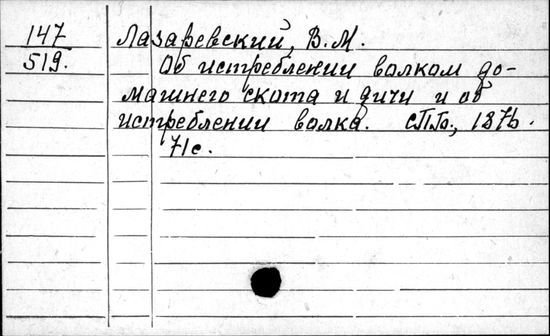 147
519.
Лазаревский, В.М.
Об истреблении волком до-
машнего скота и дичи и об
истреблении волка. СПб., 1876.
71с.